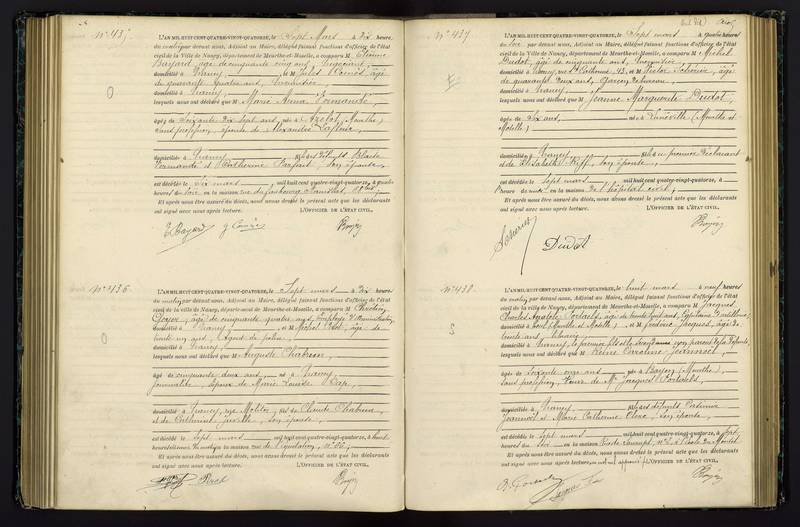 N° 435
L'AN MIL HUIT CENT QUATRE-VINGT-QUATORZE, le Sept Mars à dix heures
du matin par devant nous, Adjoint au Maire, délégué faisant fonctions d'officier de l'état
civil de la Ville de Nancy, département de Meurthe-et-Moselle, a comparu M Etienne
Bayard, âgé de cinquante cinq ans, Négociant,
domicilié à Nancy, et M Jules
de quarante quatre ans,
domicilié à Nancy,
lesquels nous ont déclaré que M Marie Anna Fermande,
âgée de soixante dix sept ans née à Azelot, (Meurthe)
sans profession, épouse de Alexandre
domiciliée à Nancy
et Catherine Parfait, son épouse,
est décédée le six mars mil huit cent quatre-vingt-quatorze, à quatre
heures du soir, en sa maison rue du faubourg Stanislas,
Et après nous être assuré du décès, nous avons dressé le présent acte que les déclarants
ont signé avec nous après lecture. L'OFFICIER DE L'ÉTAT CIVIL,
E Bayard
N° 436
L'AN MIL HUIT CENT QUATRE-VINGT-QUATORZE, le Sept mars à dix heures
du matin par devant nous, Adjoint au Maire, délégué faisant fonctions d'officier de l'état
civil de la ville de Nancy, département de Meurthe-et-Moselle, a comparu M
âgé de cinquante quatre ans, Employé
domicilié à Nancy, et M Michel âgé de
trente un ans, Agent de police,
domicilié à Nancy,
lesquels nous ont déclaré que M Auguste Chabrun
âgé de cinquante deux ans, né à Nancy,
Journalier, époux de Marie Louise
domicilié à Nancy, rue Molitor, fils de Claude Chabrun
et de Catherine son épouse
est décédé le Sept mars mil huit cent quatre-vingt-quatorze, à huit
heures du matin en sa maison rue de
Et après nous être assuré du décès, nous avons dressé le présent acte que les déclarants
ont signé avec nous après lecture. L'OFFICIER DE L'ÉTAT CIVIL,
N° 437
L'AN MIL HUIT CENT QUATRE-VINGT-QUATORZE, le Sept mars à quatre heures
du soir par devant nous, Adjoint au Maire, délégué faisant fonctions d'officier de l'état
civil de la Ville de Nancy, département de Meurthe-et-Moselle, a comparu M Michel
Dudot, âgé de cinquante ans,
domicilié à Nancy, rue Ste Catherine, 13, et M Victor âgé
de quarante deux ans, Garçon de bureau,
domicilié à Nancy,
lesquels nous ont déclaré que M Jeanne Marguerite Dudot,
âgée de six ans, née à Lunéville (Meurthe et
Moselle)
domiciliée à Nancy, fille du premier déclarant
et de Elisabeth son épouse,
est décédée le Sept mars mil huit cent quatre-vingt-quatorze, à
heure du matin, en sa maison de l'hôpital civil,
Et après nous être assuré du décès, nous avons dressé le présent acte que les déclarants
ont signé avec nous après lecture. L'OFFICIER DE L'ÉTAT CIVIL,
Dudot
N° 438
S
L'AN MIL HUIT CENT QUATRE-VINGT-QUATORZE, le huit mars à neuf heures
du matin par devant nous, Adjoint au Maire, délégué faisant fonctions d'officier de l'état
civil de la Ville de Nancy, département de Meurthe-et-Moselle, a comparu M Jacques
Charles Anatole âgé de trente huit ans, Capitaine d'artillerie,
domicilié à Toul (Meurthe et Moselle) et M Frédéric Jacques, âgé de
trente ans, libraire
domicilié à Nancy, le premier fils et le second non parent de la défunte,
lesquels nous ont déclaré que M Reine Caroline Jeannot,
âgée de soixante onze ans née à Bayon (Meurthe),
sans profession, Veuve de M. Jacques
domiciliée à Nancy, fille des défunts
Jeannot et Marie Catherine son épouse
est décédée le Sept mars mil huit cent quatre-vingt-quatorze, à sept
heures du soir en sa maison
Et après nous être assuré du décès, nous avons dressé le présent acte que les déclarants
ont signé avec nous après lecture. L'OFFICIER DE L'ÉTAT CIVIL,